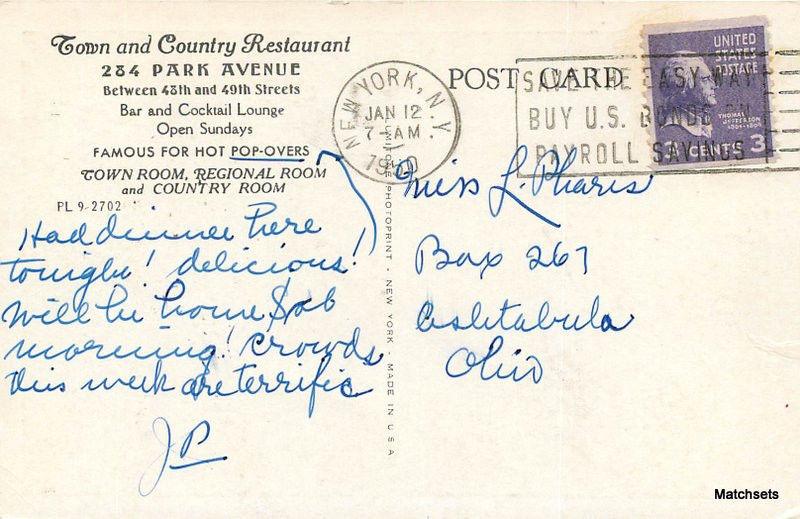 Town and Country Restaurant
284 PARK AVENUE
Between 48th and 49th Streets
Bar and Cocktail Lounge
Open Sundays
FAMOUS FOR HOT POP-OVERS
TOWN ROOM, REGIONAL ROOM
and COUNTRY ROOM
PL 9-2702
Had dinner here
tonight! delicious!
Will be home Sab
morning! Crowds
this week are terrific
JP
PHOTOPRINT - NEW YORK - MADE IN U S A
POST CARD
NEW YORK, N.Y.
JAN 12
7 - AM
1950
SAVE THE EASY WAY
BUY U.S. BONDS ON
PAYROLL SAVINGS
UNITED
STATES
POSTAGE
THOMAS
JEFFERSON
3 CENTS 3
Miss L. Phares
Box 267
Ashtabula
Ohio
Matchsets